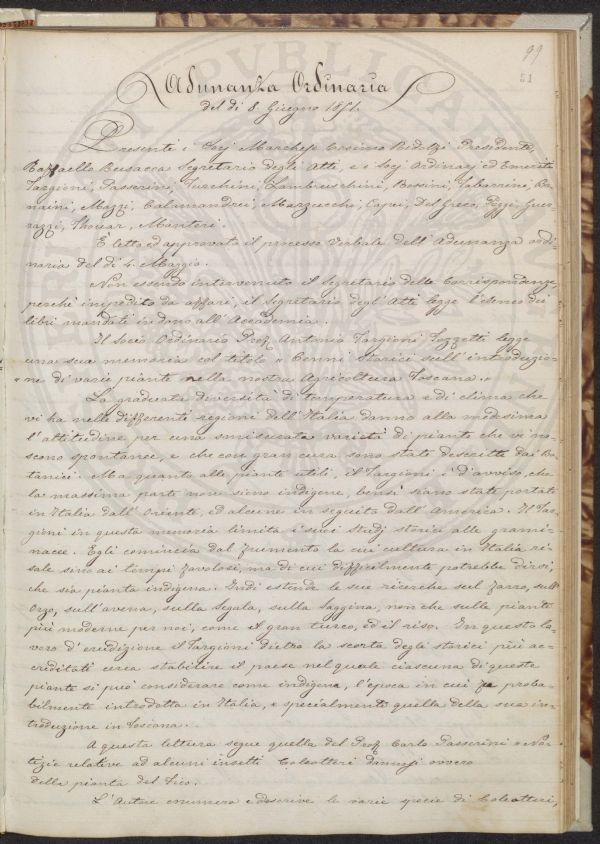 99
51
Adunanza Ordinaria
del dì 8. Giugno 1851.
Presenti i Socj Marchese Cosimo Ridolfi Presidente,
Raffaello Busacca Segretario degli Atti, e i Socj Ordinarj ed Emeriti
Targioni, Passerini, Turchini, Lambruschini, Bossini, Tabarrini, Bo-
naini, Mazzi, Calamandrei, Marzucchi, Capei, Del Greco, Pezzi, Guer-
razzi, Thouar, Manteri.
È letto ed approvato il processo Verbale dell'Adunanza ordi-
naria del dì 4. Maggio.
Non essendo intervenuto il Segretario delle Corrispondenze,
perchè impedito da affari, il Segretario degl'Atti legge l'elenco dei
libri mandati in dono all'Accademia.
Il Socio Ordinario Prof. Antonio Targioni Tozzetti legge
una sua memoria col titolo « Cenni Storici sull'introduzio-
« ne di varie piante nella nostra Agricoltura Toscana. »
La graduata diversità di temperatura e di clima che
vi ha nelle differenti regioni dell'Italia danno alla medesima
l'attitudine per una smisurata varietà di piante che vi na-
scono spontanee, e che con gran cura sono state descritte dai Bo-
tanici. Ma quanto alle piante utili, il Targioni è d'avviso, che
la massima parte non sieno indigene, bensì siano state portate
in Italia dall'Oriente, ed alcune in seguito dall'America. Il Tar-
gioni in questa memoria limita i suoi studj storici alle grami-
nacee. Egli comincia dal frumento la cui cultura in Italia ri-
sale sino ai tempi favolosi, ma di cui difficilmente potrebbe dirsi,
che sia pianta indigena. Indi estende le sue ricerche sul farro, sull'
Orzo, sull'avena, sulla Segala, sulla Saggina, non che sulle piante
più moderne per noi, come il gran turco, ed il riso. In questo la-
voro d'erudizione il Targioni dietro la scorta degli storici più ac-
creditati cerca stabilire il paese nel quale ciascuna di queste
piante si può considerare come indigena, l'epoca in cui fu proba-
bilmente introdotta in Italia, e specialmente quella della sua in-
troduzione in Toscana.
A questa lettura segue quella del Prof. Carlo Passerini « No-
tizie relative ad alcuni insetti Coleotteri dannosi ovvero
della pianta del Fico.
L'Autore enumera e descrive le varie specie di Coleotteri,